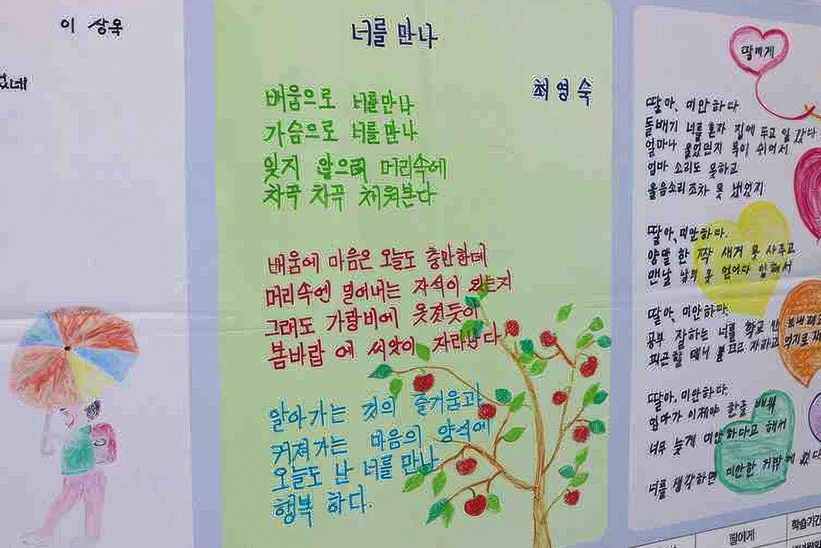 이 상옥
너를 만나
최영숙
배움으로 너를만나
가슴으로 너를만나
잊지 않으려 머리속에
차곡 차곡 채워본다
배움에 마음은 오늘도 충만한데
머리속엔 밀어내는 지식이 있는지
그래도 가랑비에 옷젖듯이
봄바람 에 씨앗이 자라난다
알아가는 것의 즐거움과
커져가는 마음의 양식에
오늘도 난 너를 만나
행복 하다.
딸에게
딸아, 미안하다
돌배기 너를 혼자 집에 두고 일 갔다
얼마나 울었던지 목이 쉬어서
엄마 소리도 못하고
울음소리 조차 못 내었지
딸아, 미안하다.
양말 한 짝 새거 못 사주고
맨날 안해서
딸아, 미안하다.
공부 잘하는 너를 학교
피곤할 테니 불 끄고 자라고 억지로
딸아, 미안하다.
엄마가 이제야 한글 배워
너무 늦게 미안하다고 해서
너를 생각하면 미안한 거밖에
딸이게
학습기간